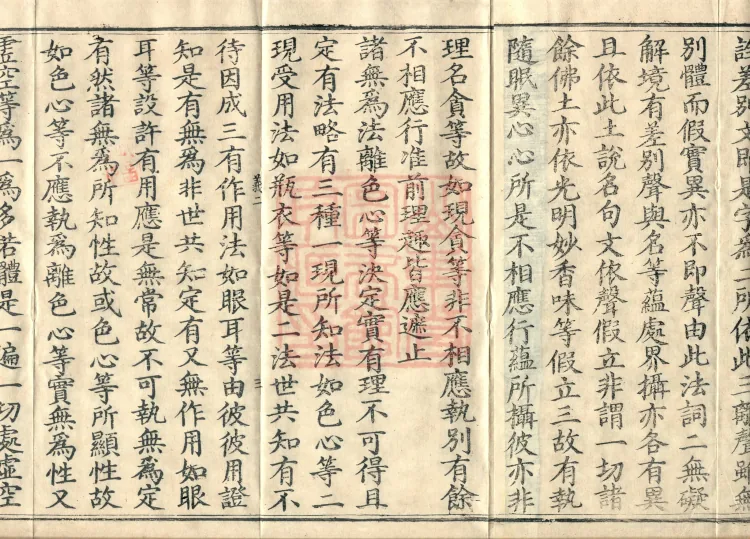 詮差別文即是字爲二所依此三離聲雖無
別體而假實異亦不即聲由此法詞二無礙
解境有差別聲與名等蘊處界攝亦各有異
且依此土說名句文依聲假立非謂一切諸
餘佛土亦依光明妙香味等假立三故有執
隨眠異心心所是不相應行蘊所攝彼亦非
理名貪等故如現貪等非不相應執別有餘
不相應行准前理趣皆應遮止
諸無爲法離色心等決定實有理不可得且
定有法略有三種一現所知法如色心等二
現受用法如瓶衣等如是二法世共知有不
義二 三
待因成三有作用法如眼耳等由彼彼用證
知是有無爲非世共知定有又無作用如眼
耳等設許有用應是無常故不可執無爲定
有然諸無爲所知性故或色心等所顯性故
如色心等不應執爲離色心等實無爲性又
虛空等爲一爲多若體是一遍一切處虛空